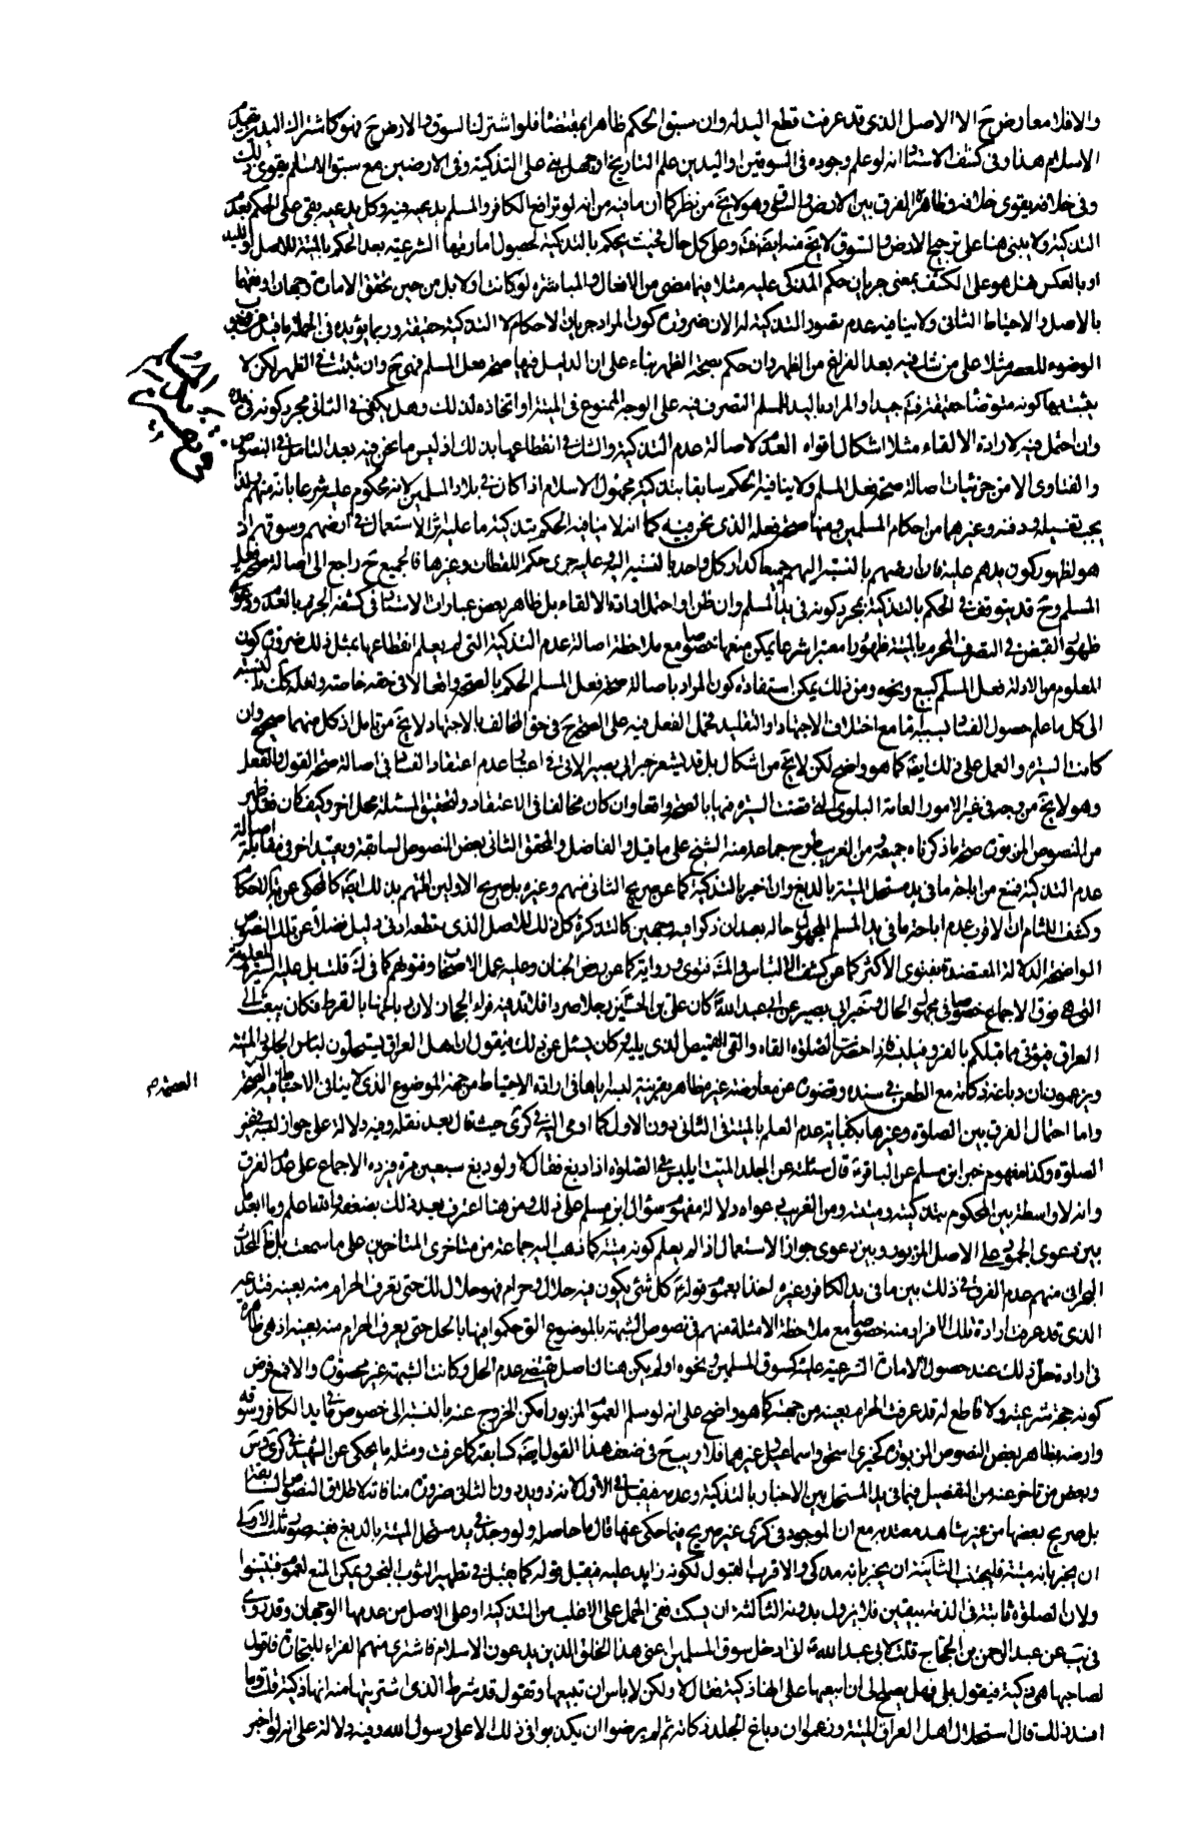 والا فلا معارض ح الا الاصل الذى قد عرفت قطع اليد له وان سبق الحكم ظاهرا بمقتضاه فلو اشترك السوق والارض ح فهو كاشتراك اليد
الاسلام هذا وفى كشف الاستاد انه لو علم وجوده فى السوقين او اليدين علم التاريخ او جهل بنى على التذكية وفى الارضين مع سبق الاسلام يقوى ذلك
وفى خلافه يقوى خلافه وظاهره الفرق بين الارض والسوق وهو لا يخ من نظر كما ان ما فيه من انه لو ترافع الكافر والمسلم يدعيه فيه وكل يدعيه بقى على الحكم بعدم
التذكية ولا يبنى هنا على ترجيح الارض والسوق لا يخ منه ايضا وعلى كل حال فحيث يحكم بالتذكية لحصول امارتها الشرعية بعد الحكم بالميتة للاصل او لليد
او بالعكس فهل هو على الكشف بمعنى جريان حكم المذكى عليه مثلا فيما مضى من الافعال والمباشرة لو كانت اولا بل من حين تحقق الامارة وجهان اوفقهما
بالاصل والاحتياط الثانى ولا ينافيه عدم تصور التذكية له الان ضرورة كون المراد جريان الاحكام لا التذكية حقيقة وربما يؤيده فى الجملة ما قيل من
الوضوء للعصر مثلا على من شك فيه بعد الفراغ من الظهر وان حكم بصحة الظهر بناء على ان الدليل فيها صحة فعل المسلم فهى ح وان ثبتت فى الظهر لكن لا
يثبت بها كونه متوضئا حقيقة فت جيدا والمراد باليد للمسلم التصرف فيه على الوجه الممنوع فى الميتة او اتخاذه لذلك وهل يكفى فى الثانى مجرد كونه فى يده
وان احتمل فيه لارادة الالقاء مثلا اشكال اقواه العدم لاصالة عدم التذكية والشك فى انقطاعها بذلك اذ ليس ما نحن فيه بعد التامل فى النصوص
والفتاوى الا من جزئيات اصالة صحة فعل المسلم ولا ينافيه الحكم سابقا بتذكية مجهول الاسلام اذا كان فى بلاد المسلمين لانه محكوم عليه شرعا بانه منهم ولذا
يجب تغسيله ودفنه وغيرهما من احكام المسلمين ومنها صحة فعله الذى نحن فيه كما انه لا ينافيه الحكم بتذكية ما عليه اثر الاستعمال فى ارضهم وسوقهم اذ
هو لظهور كون يدهم عليه فان ارضهم بالنسبة اليهم جميعا كدار كل واحد بالنسبة اليه وعليه جرى حكم اللقطات وغيرها فالجميع ح راجع الى اصالة صحة فعل
المسلم وح قد يتوقف فى الحكم بالتذكية بمجرد كونه فى يد المسلم وان ظن او احتمل ارادة الالقاء بل ظاهر بعض عبارات الاستاد فى كشفه الجزم بالعدم ودعوى
ظهور القبض فى التصرف المحرم بالميتة ظهورا معتبرا شرعا يمكن منعها خصوصا مع ملاحظة اصالة عدم التذكية التى لم يعلم انقطاعها بمثل ذلك ضرورة كون
المعلوم من الادلة فعل المسلم كبيع ونحوه ومن ذلك يمكن استفادة كون المراد باصالة صحة فعل المسلم الحكم بالصحة واقعا لا فى حقه خاصة ولعله كك بالنسبة
الى كل ما علم حصول الفساد بسببه اما مع اختلاف الاجتهاد او التقليد فحمل الفعل فيه على الصحيح فى حق المخالف بالاجتهاد لا يخ من تامل اذ كل منهما صحيح وان
كانت السيرة والعمل على ذلك ايضا كما هو واضح لكن لا يخ من اشكال بل قد يشعر خبر ابى بصير الاتى فى اعتبار عدم اعتقاد الفساد فى اصالة صحة القول والفعل
وهو لا يخ من وجه فى غير الامور العامة البلوى التى قضت السيرة فيها بالصحة واقعا وان كان مخالفا فى الاعتقاد ولتحقيق المسئلة محل اخر وكيف كان فقد ظهر
من النصوص المزبورة صحة ما ذكرناه جميعه ومن الغريب طرح جماعة منهم الشيخ على ما قيل والفاضل والمحقق الثانى بعض النصوص السابقة وتقييد اخر فى مقابلة اصالة
عدم التذكية فمنع من اباحة ما فى يد مستحل الميتة بالدبغ وان اخبر بالتذكية كما عن صريح الثانى منهم وغيره بل صريح الاولين المتهم بذلك ايضا كالمحكى عن نهاية الاحكام
وكشف اللثام ان الاقرب عدم اباحة ما فى يد المسلم المجهول حاله بعد ان ذكرا فيه وجهين كالتذكرة كل ذلك للاصل الذى ينقطع بادنى دليل فضلا عن تلك النصوص
الواضحة الدلالة المعتضدة بفتوى الاكثر كما عن كشف الالتباس والمشهور فتوى ورواية كما عن روض الجنان وعليه عمل الاصحاب وفتواهم كما فى قلت بل عليه السيرة المعلومة
التى هى فوق الاجماع خصوصا فى مجهول الحال فخبر ابى بصير عن ابى عبد الله ع كان على بن الحسين رجلا صردا فلا تدفئه فراء الحجاز لان دباغها بالقرظ فكان يبعث الى
العراق فيؤتى مما قبلكم بالفرو فيلبسه فاذا حضرت الصلوة القاه والقى القميص الذى يليه وكان يسئل عن ذلك فيقول ان اهل العراق يستحلون لباس الجلود الميتة
ويزعمون ان دباغه ذكاته مع الطعن فى سنده وقصوره عن معارضة غيره ظاهر بقرينة لبسه اياها فى ارادة الاحتياط من جهة الموضوع الذى لا ينافى الاحتياط فيه الصحة
العصمة م
واما احتمال الفرق بين الصلوة وغيرها بكفاية عدم العلم بالميتة فى الثانى دون الاول كما اومى اليه فى كرى حيث قال بعد نقله وفيه دلالة على جواز لبسه فى غير
الصلوة وكذا مفهوم خبر ابن مسلم عن الباقر ع قال سئلته عن الجلد الميت ايلبس فى الصلوة اذا دبغ فقال لا ولو دبغ سبعين مرة فيرده الاجماع على عدم الفرق
وانه لا واسطة بين المحكوم بتذكيته وميتته ومن الغريب دعواه دلالة مفهوم سؤال ابن مسلم على ذلك ومن هنا اعترف بعد ذلك بضعفه والله اعلم وما ابعد
بين دعوى الجمود على الاصل المزبور وبين دعوى جواز الاستعمال اذا لم يعلم كونه ميتة كما ذهب اليه جماعة من متاخرى المتاخرين على ما سمعت بل ظاهر المحدث
البحرانى منهم عدم الفرق فى ذلك بين ما فى يد الكافر وغيره اخذا بعموم قوله ع كل شئ يكون فيه حلال وحرام فهو حلال لك حتى تعرف الحرام منه بعينه فتدعه
الذى قد عرفت ارادة تلك الافراد منه خصوصا مع ملاحظة الامثلة منهم فى نصوص الشبهة بالموضوع التى حكموا فيها بالحل حتى يعرف الحرام منه بعينه اذ هى ظاهرة
فى ارادة حل ذلك عند حصول الامارة الشرعية عليه كسوق المسلمين ونحوه او لم يكن هناك اصل يقتضى عدم الحل وكانت الشبهة غير محصورة والا فمع فرض
كونه حجة شرعية ولا قاطع له قد عرفت الحرام بعينه من جهته كما هو واضح على انه لو سلم العموم المزبور امكن الخروج عنه بالنسبة الى خصوص ما فى يد الكافر وسوقه
وارضه بظاهر بعض النصوص المزبورة كخبرى اسحق واسماعيل وغيرهما فلا ريب ح فى ضعف هذا القول ايضا كسابقه كما عرفت ومثله ما يحكى عن الشهيد فى كرى وس
وبعض من تاخر عنه من التفصيل فيما فى يد المستحل بين الاخبار بالتذكية وعدمه فيقبل فى الاول لانه ذو يد دون الثانى ضرورة منافاته لاطلاق النصوص السابقة
بل صريح بعضها من غير شاهد معتد به مع ان الموجود فى كرى غير صريح فيما حكى عنها قال ما حاصله ولو وجد فى يد مستحل الميتة بالدبغ ففيه صور ثلث الاولى
ان يخبر بانه ميتة فليجتنب الثانية ان يخبر بانه مذكى والاقرب القبول لكونه زايد عليه فيقبل قوله كما يقبل فى تطهير الثوب النجس ويمكن المنع لعموم فتبينوا
ولان الصلوة ثابتة فى الذمة بيقين فلا يزول بدونه الثالثة ان يسكت ففى الحمل على الاغلب من التذكية او على الاصل من عدمها الوجهان وقد روى
فى يب عن عبد الرحمن بن الحجاج قلت لابى عبد الله ع انى ادخل سوق المسلمين اعنى هذا الخلق الذين يدعون الاسلام فاشترى منهم الفراء للتجارة فاقول
لصاحبها هى ذكية فيقول بلى فهل يصلح لى ان ابيعها على انها ذكية فقال لا ولكن لا باس ان تبيعها وتقول قد شرط الذى اشتريتها منه انها ذكية قلت وما
افسد ذلك قال استحلال اهل العراق للميتة وزعموا ان دباغ الجلد ذكاته ثم لم يرضوا ان يكذبوا فى ذلك الا على رسول الله وفيه دلالة على انه لو اخبر